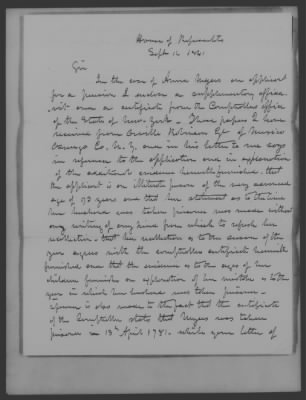 House of Representatives
Sept 1841
Sir
In the case of Anna Meyers an applicant
for a pension I enclose a supplementary affida
vit and a certificate from the Comptrollers office
of the State of New York. These papers I have
received from Orville Robinson Esq of Mexico
Oswego Co. N. Y. and in his letter to me says
in reference to the application and in explanation
of the additional evidence herewith furnished, that
the applicant is an illiterate person of the very advanced
age of 93 years and that her statement as to the time
her husband was taken prisoner was made without
any writing of any kind from which to refresh her
recollection - that her recollection as to the season of the
year agrees with the comptrollers certificate herewith
furnished and that the evidence as to the ages of her
children furnishes an explanation of her mistake as to the
year in which her husband was taken prisoner -
is also made to the fact that the certificate
of the Comptroller states that Meyers was taken
prisoner on 13th April 1781. which your letter of